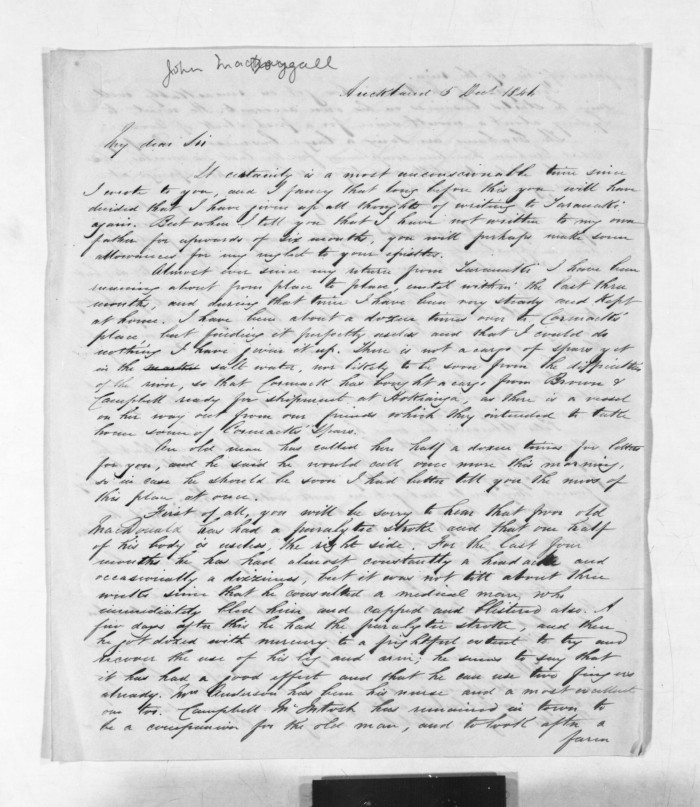 John MacDougall
Auckland 5 Decr 1844
My dear Sir
It certainly is a most unconscionable time since
I wrote to you, and I fancy that long before this you will have
decided that I have given up all thoughts of writing to Taranaki
again. But when I tell you that I have not written to my own
father for upwards of six months, you will perhaps make some
allowances for my neglect to your epistles.
Almost ever since my return from Taranaki I have been
running about from place to place, until within the last three
months, and during that time I have been very steady and kept
at home. I have been about a dozen times over to Cormack's
place, but finding it perfectly useless and that I could do
nothing I have given it up. There is not a cargo of spars yet
in the salt water, nor likely to be soon from the difficulties
of the river, so that Cormack has bought a cargo from Brown &
Campbell ready for shipment at Hokianga, as there is a vessel
on her way out from our friends which they intended to take
home some of Cormack's Spars.
An old man has called here half a dozen times for letters
for you, and he said he would call once more this morning,
so in case he should be soon I had better tell you the news of
this place at once.
First of all, you will be sorry to hear that poor old
MacDonald has had a paralytic stroke and that one half
of his body is useless, the right side. For the last four
months he has had almost constantly a headache and
occasionally a dizziness, but it was not till about three
weeks since that he consulted a medical man, who
immediately bled him and cupped and blistered also. A
few days after this he had the paralytic stroke, and then
he got dozed with mercury to a frightful extent to try and
recover the use of his leg and arm; he seems to say that
it has had a good effect and that he can use two fingers
already. Mrs Anderson has been his nurse and a most excellent
one too. Campbell McIntosh has remained in town to
be a companion for the old man, and to look after a
farm